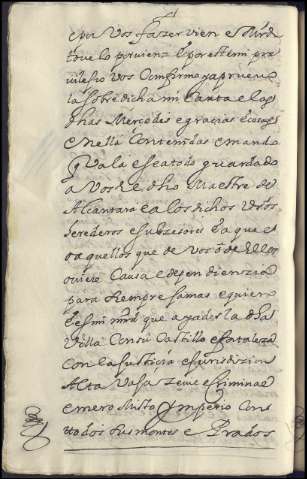 por vos fazer vien e md
que lo previenz e por este mi pre
vilejio vos confirmo y apruevo
la sobre dicha mi carta e las
dhas Mercedes e gracias e cosas
en ella contenidas e mando
q vala e sea todo guardado
a vos el dho Maestre de
Alcantara e a los dichos vros
herederos e subzesores e a que
o aquellos que de vos o de ellos
oviere causa e dependienzia
para siempre jamas e quiero
e es mi mrd que ayades la dha
villa con su castillo e fortaleza
con la justicia e jurisdizion
Alta vaja zevil e criminal
e mero misto ymperio con
todos sus montes e Prados